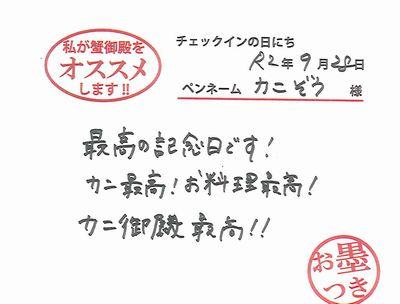 私が蟹御殿を
オススメ
します!!
チェックインの日にち
R2年9月28日
ペンネーム カニぞう 様
最高の記念日です!
カニ最高!お料理最高!
カニ御殿最高!!
お墨
つき